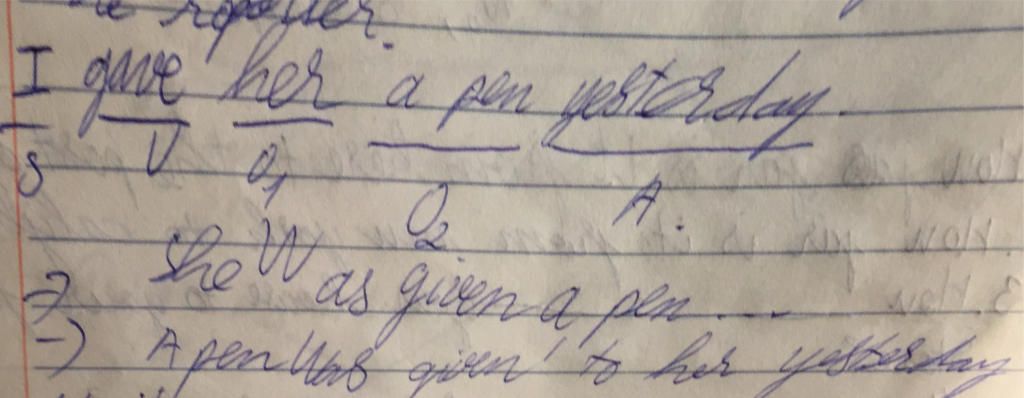 I gave her a pen yesterday.
S V O1 O2 A.
She Was given a pen ...
→ A pen Was given to her yesterday